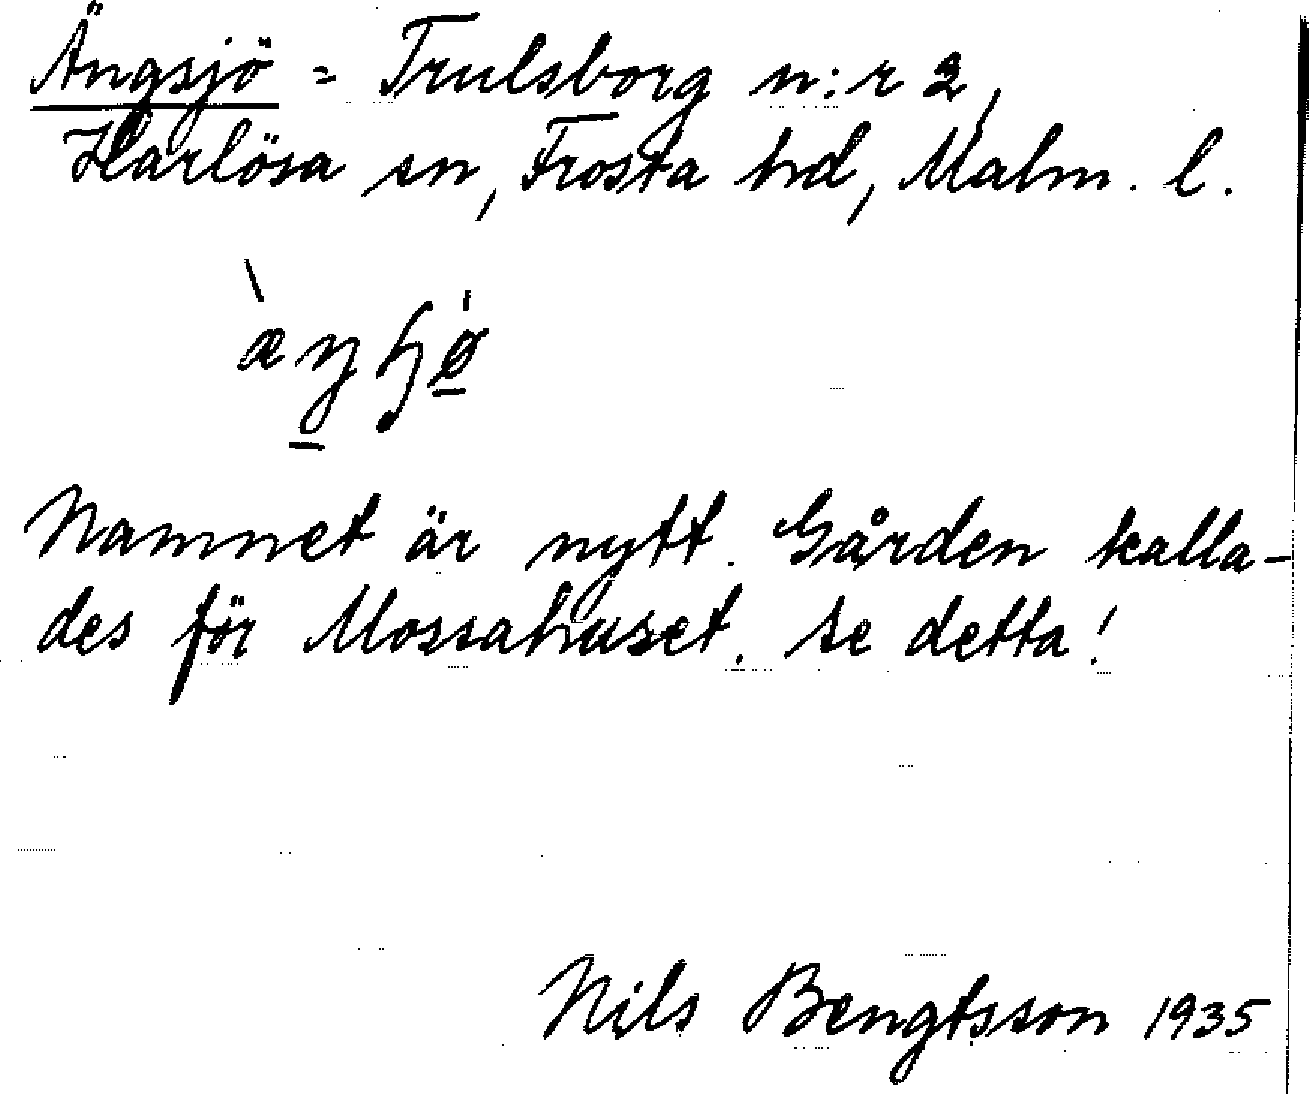 Ängsjö = Trulsborg n:r 2,
Harlösa sn, Frosta hd, Malm. l.
Namnet är nytt. Gården kalla-
des för Mossahuset. se detta!
Nils Bengtsson 1935